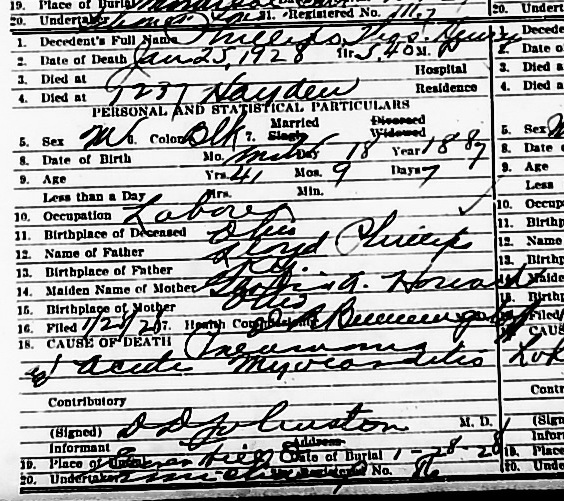 19. Place of Burial
20. Undertaker 21. Registered No.
20. Undert
1. Decedent's Full Name Phillips, Geo. Henry
1. Decede
2. Date of Death Jan 25, 1928 Hr. 5,40 M. P
2. Date o
3. Died at Hospital
3. Died a
4. Died at 1237 Hayden Residence
4. Died a
PERSONAL AND STATISTICAL PARTICULARS
5. Sex M 6. Color Blk 7. Married Single Divorced Widowed
5. Sex
8. Date of Birth Mo. Day 18 Year 1887
8. Date
9. Age Yrs. 41 Mos. 9 Days 7
9. Age
Less than a Day Hrs. Min.
Less
10. Occupation Laborer
10. Occupa
11. Birthplace of Deceased Ohio
11. Birthp
12. Name of Father Lloyd Phillips
12. Name
13. Birthplace of Father Ky.
13. Birthp
14. Maiden Name of Mother A. Howard
Maiden
15. Birthplace of Mother Ohio
Birthp
16. Filed 1/28/28 17. Health Commissioner
Filed
18. CAUSE OF DEATH Pneumonia
CAUS
Acute Myocarditis
Lob
Contributory
Contr
(Signed) D D Johnston M. D.
(Sign
Informant Address
Infor
19. Place of Burial Date of Burial 1-28-28
19. Place
20. Undertaker 21. Registered No. 86
20. Under